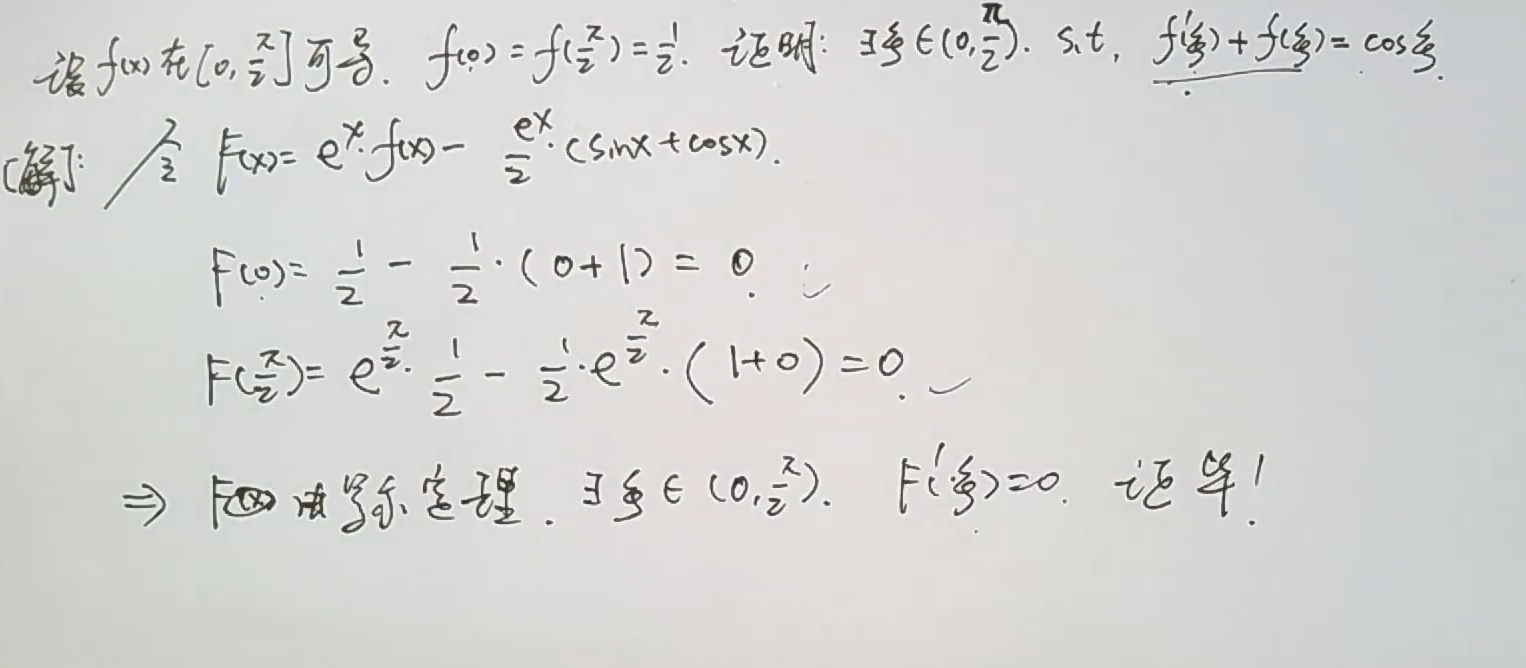 设f(x)在[0,π/2]可导. f(0)=f(π/2)=1/2. 证明: ∃ξ∈(0,π/2). s.t. f'(ξ)+f(ξ)=cosξ.
[解]: 令 F(x)= e^x·f(x) - e^x/2·(sinx+cosx).
F(0)= 1/2 - 1/2·(0+1) = 0.
F(π/2)= e^(π/2)·1/2 - 1/2·e^(π/2)·(1+0)=0.
⇒ F(x) 由罗尔定理. ∃ξ∈(0,π/2). F'(ξ)=0. 证毕!